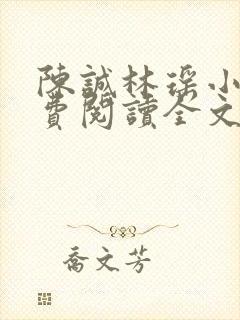 陳誠林瑶小
費閱讀全文
喬文芳